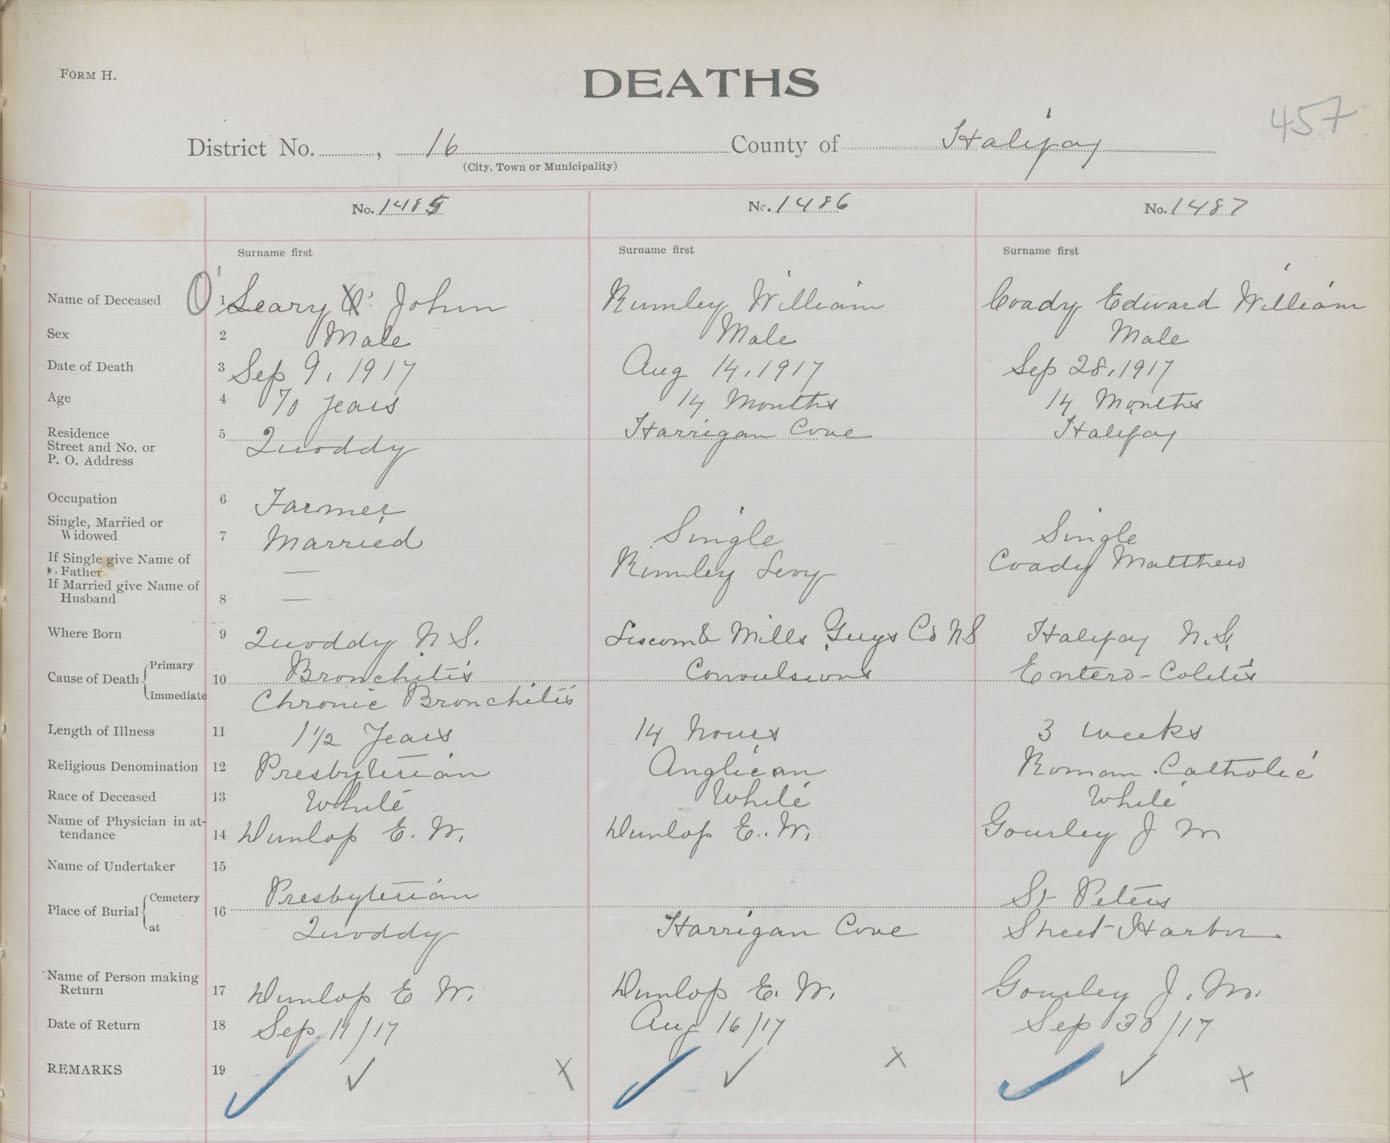 FORM H.
DEATHS
457
District No. , 16 County of Halifax
(City, Town or Municipality)
No. 1485 No. 1486 No. 1487
Surname first Surname first Surname first
Name of Deceased 1 O' Leary John Rumley William Coady Edward William
Sex 2 Male Male Male
Date of Death 3 Sep 9, 1917 Aug 14, 1917 Sep 28, 1917
Age 4 70 Years 14 Months 14 Months
Residence
Street and No. or
P. O. Address 5 Quoddy Harrigan Cove Halifax
Occupation 6 Farmer
Single, Married or
Widowed 7 Married Single Single
If Single give Name of
Father — Rumley Levy Coady Matthew
If Married give Name of
Husband 8 —
Where Born 9 Quoddy N.S. Liscomb Mills Guys Co NS Halifax N.S.
Cause of Death Primary 10 Bronchitis Convulsions Entero-Colitis
Immediate Chronic Bronchitis
Length of Illness 11 1½ Years 14 hours 3 weeks
Religious Denomination 12 Presbyterian Anglican Roman Catholic
Race of Deceased 13 White White White
Name of Physician in at-
tendance 14 Dunlop E. W. Dunlop E. W. Gourley J M
Name of Undertaker 15
Place of Burial Cemetery 16 Presbyterian St Peters
at Quoddy Harrigan Cove Sheet Harbor
Name of Person making
Return 17 Dunlop E W. Dunlop E. W. Gourley J. M.
Date of Return 18 Sep 11/17 Aug 16/17 Sep 30/17
REMARKS 19